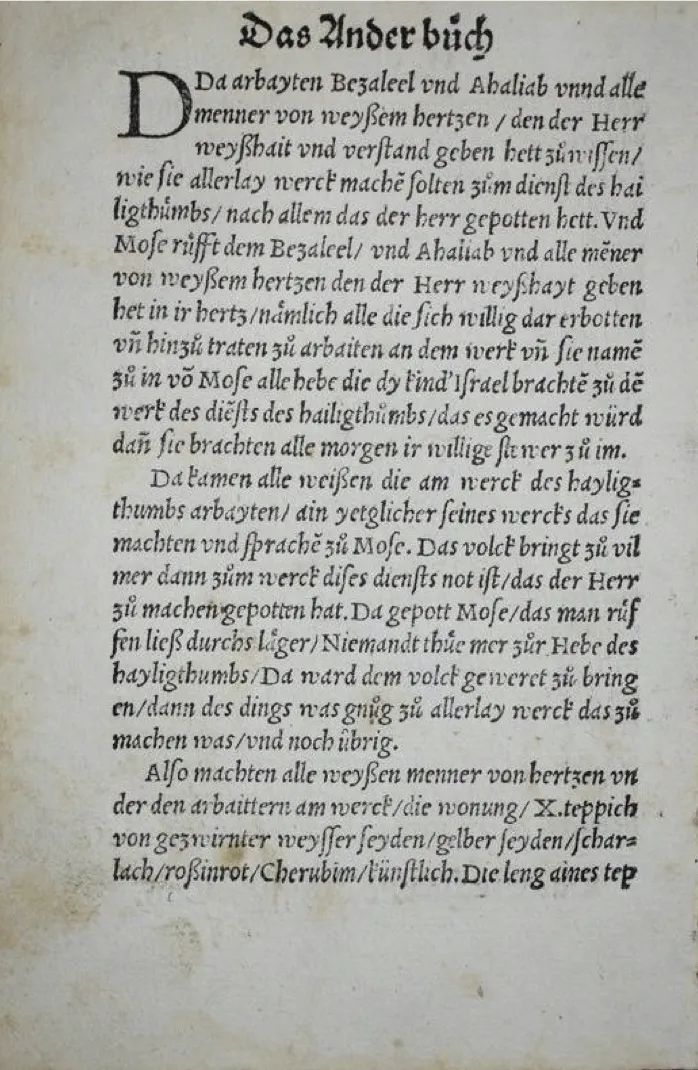 Das Ander bůch
DDa arbayten Bezaleel vnd Ahaliab vnnd alle
menner von weyßem hertzen / den der Herr
weyßhait vnd verstand geben hett zů wissen/
wie sie allerlay werck machẽ solten zům dienst des hai
ligthůmbs/ nach allem das der herr gepotten hett. Vnd
Mose růfft dem Bezaleel/ vnd Ahaliab vnd alle mẽner
von weyßem hertzen den der Herr weyßhayt geben
het in ir hertz/nåmlich alle die sich willig dar erbotten
vñ hinzů traten zů arbaiten an dem werk vñ sie namẽ
zů in võ Mose alle hebe die dy kind' Israel brachtẽ zů dẽ
werk des diẽsts des hailigthůmbs/das es gemacht würd
dañ sie brachten alle morgen ir willige stewer zů im.
Da kamen alle weißen die am werck des haylig⸗
thumbs arbayten/ ain yetglicher seines wercks das sie
machten vnd sprachẽ zů Mose. Das volck bringt zů vil
mer dann zům werck dises diensts not ist/das der Herr
zů machen gepotten hat. Da gepott Mose/das man růf
fen ließ durchs låger/Niemandt thůe mer zůr Hebe des
hayligthumbs/Da ward dem volck geweret zů bring
en/dann des dings was gnůg zů allerlay werck das zů
machen was/vnd noch übrig.
Also machten alle weyßen menner von hertzen vn
der den arbaittern am werck/die wonung/ X.teppich
von gezwirnter weysser seyden/gelber seyden/schar⸗
lach/roßinrot/Cherubim/künstlich. Die leng aines tep